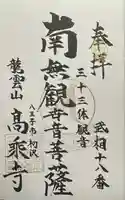 奉拝
武相十八番
三十三体観音
南無観世音菩薩
八王子市初沢
龍雲山
高乗寺